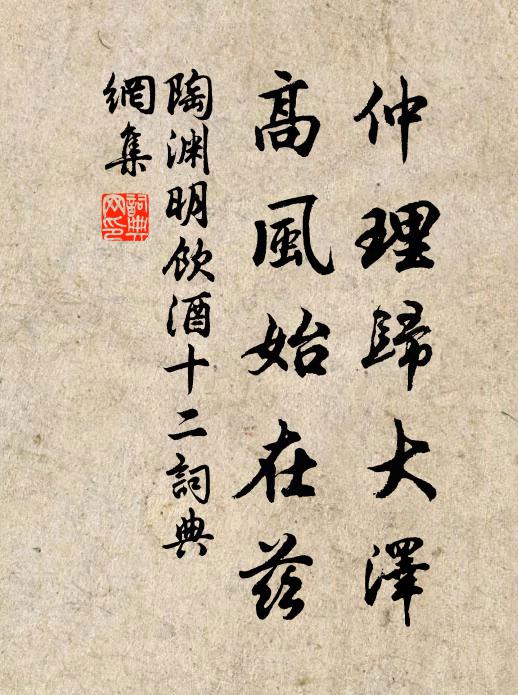 仲理歸大澤
高風始在茲
陶淵明飲酒十二詞典
網集
詞典网印